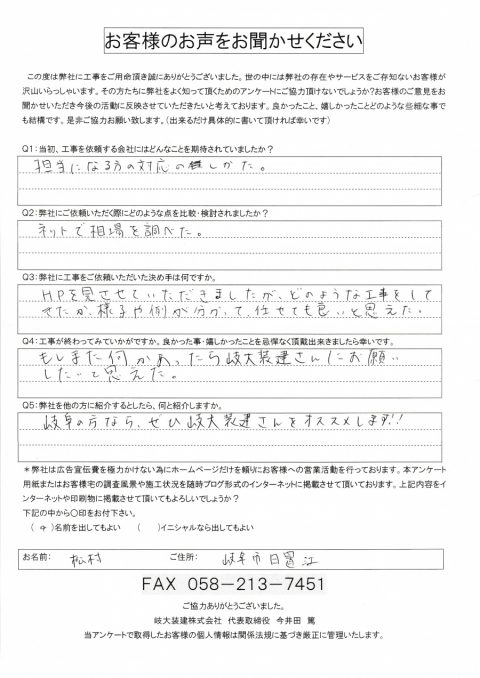 お客様のお声をお聞かせください
この度は弊社に工事をご用命頂き誠にありがとうございました。世の中には弊社の存在やサービスをご存知ないお客様が
沢山いらっしゃいます。その方たちに弊社をよく知って頂くためのアンケートにご協力頂けないでしょうか?お客様のご意見をお
聞かせいただき今後の活動に反映させていただきたいと考えております。良かったこと、嬉しかったことどのような些細な事で
も結構です。是非ご協力お願い致します。（出来るだけ具体的に書いて頂ければ幸いです）
Q1：当初、工事を依頼する会社にはどんなことを期待されていましたか？
担当になる方の対応の しかた。
Q2：弊社にご依頼いただく際にどのような点を比較・検討されましたか？
ネットで相場を調べた。
Q3：弊社に工事をご依頼いただいた決め手は何ですか。
HPを見させていただきましたが、どのような工事をして
か、様子や例が分かって、任せても良いと思えた。
Q4：工事が終わってみていかがですか。良かった事・嬉しかったことを忌憚なく頂戴出来ましたら幸いです。
もしまた何かあったら岐大装建さんにお願い
したいと思えた。
Q5：弊社を他の方に紹介するとしたら、何と紹介しますか。
岐阜の方なら、ぜひ岐大装建さんをオススメします!!
＊弊社は広告宣伝費を極力かけない為にホームページだけを頼りにお客様への営業活動を行っております。本アンケート
用紙またはお客様宅の調査風景や施工状況を随時ブログ形式のインターネットに掲載させて頂いております。上記内容をイ
ンターネットや印刷物に掲載させて頂いてもよろしいでしょうか？
下記の中から〇印をお付下さい。
（ ）名前を出してもよい （ ）イニシャルなら出してもよい
お名前： 松村 ご住所： 岐阜市日置江
FAX 058－213－7451
ご協力ありがとうございました。
岐大装建株式会社 代表取締役 今井田 篤
当アンケートで取得したお客様の個人情報は関係法規に基づき厳正に管理いたします。